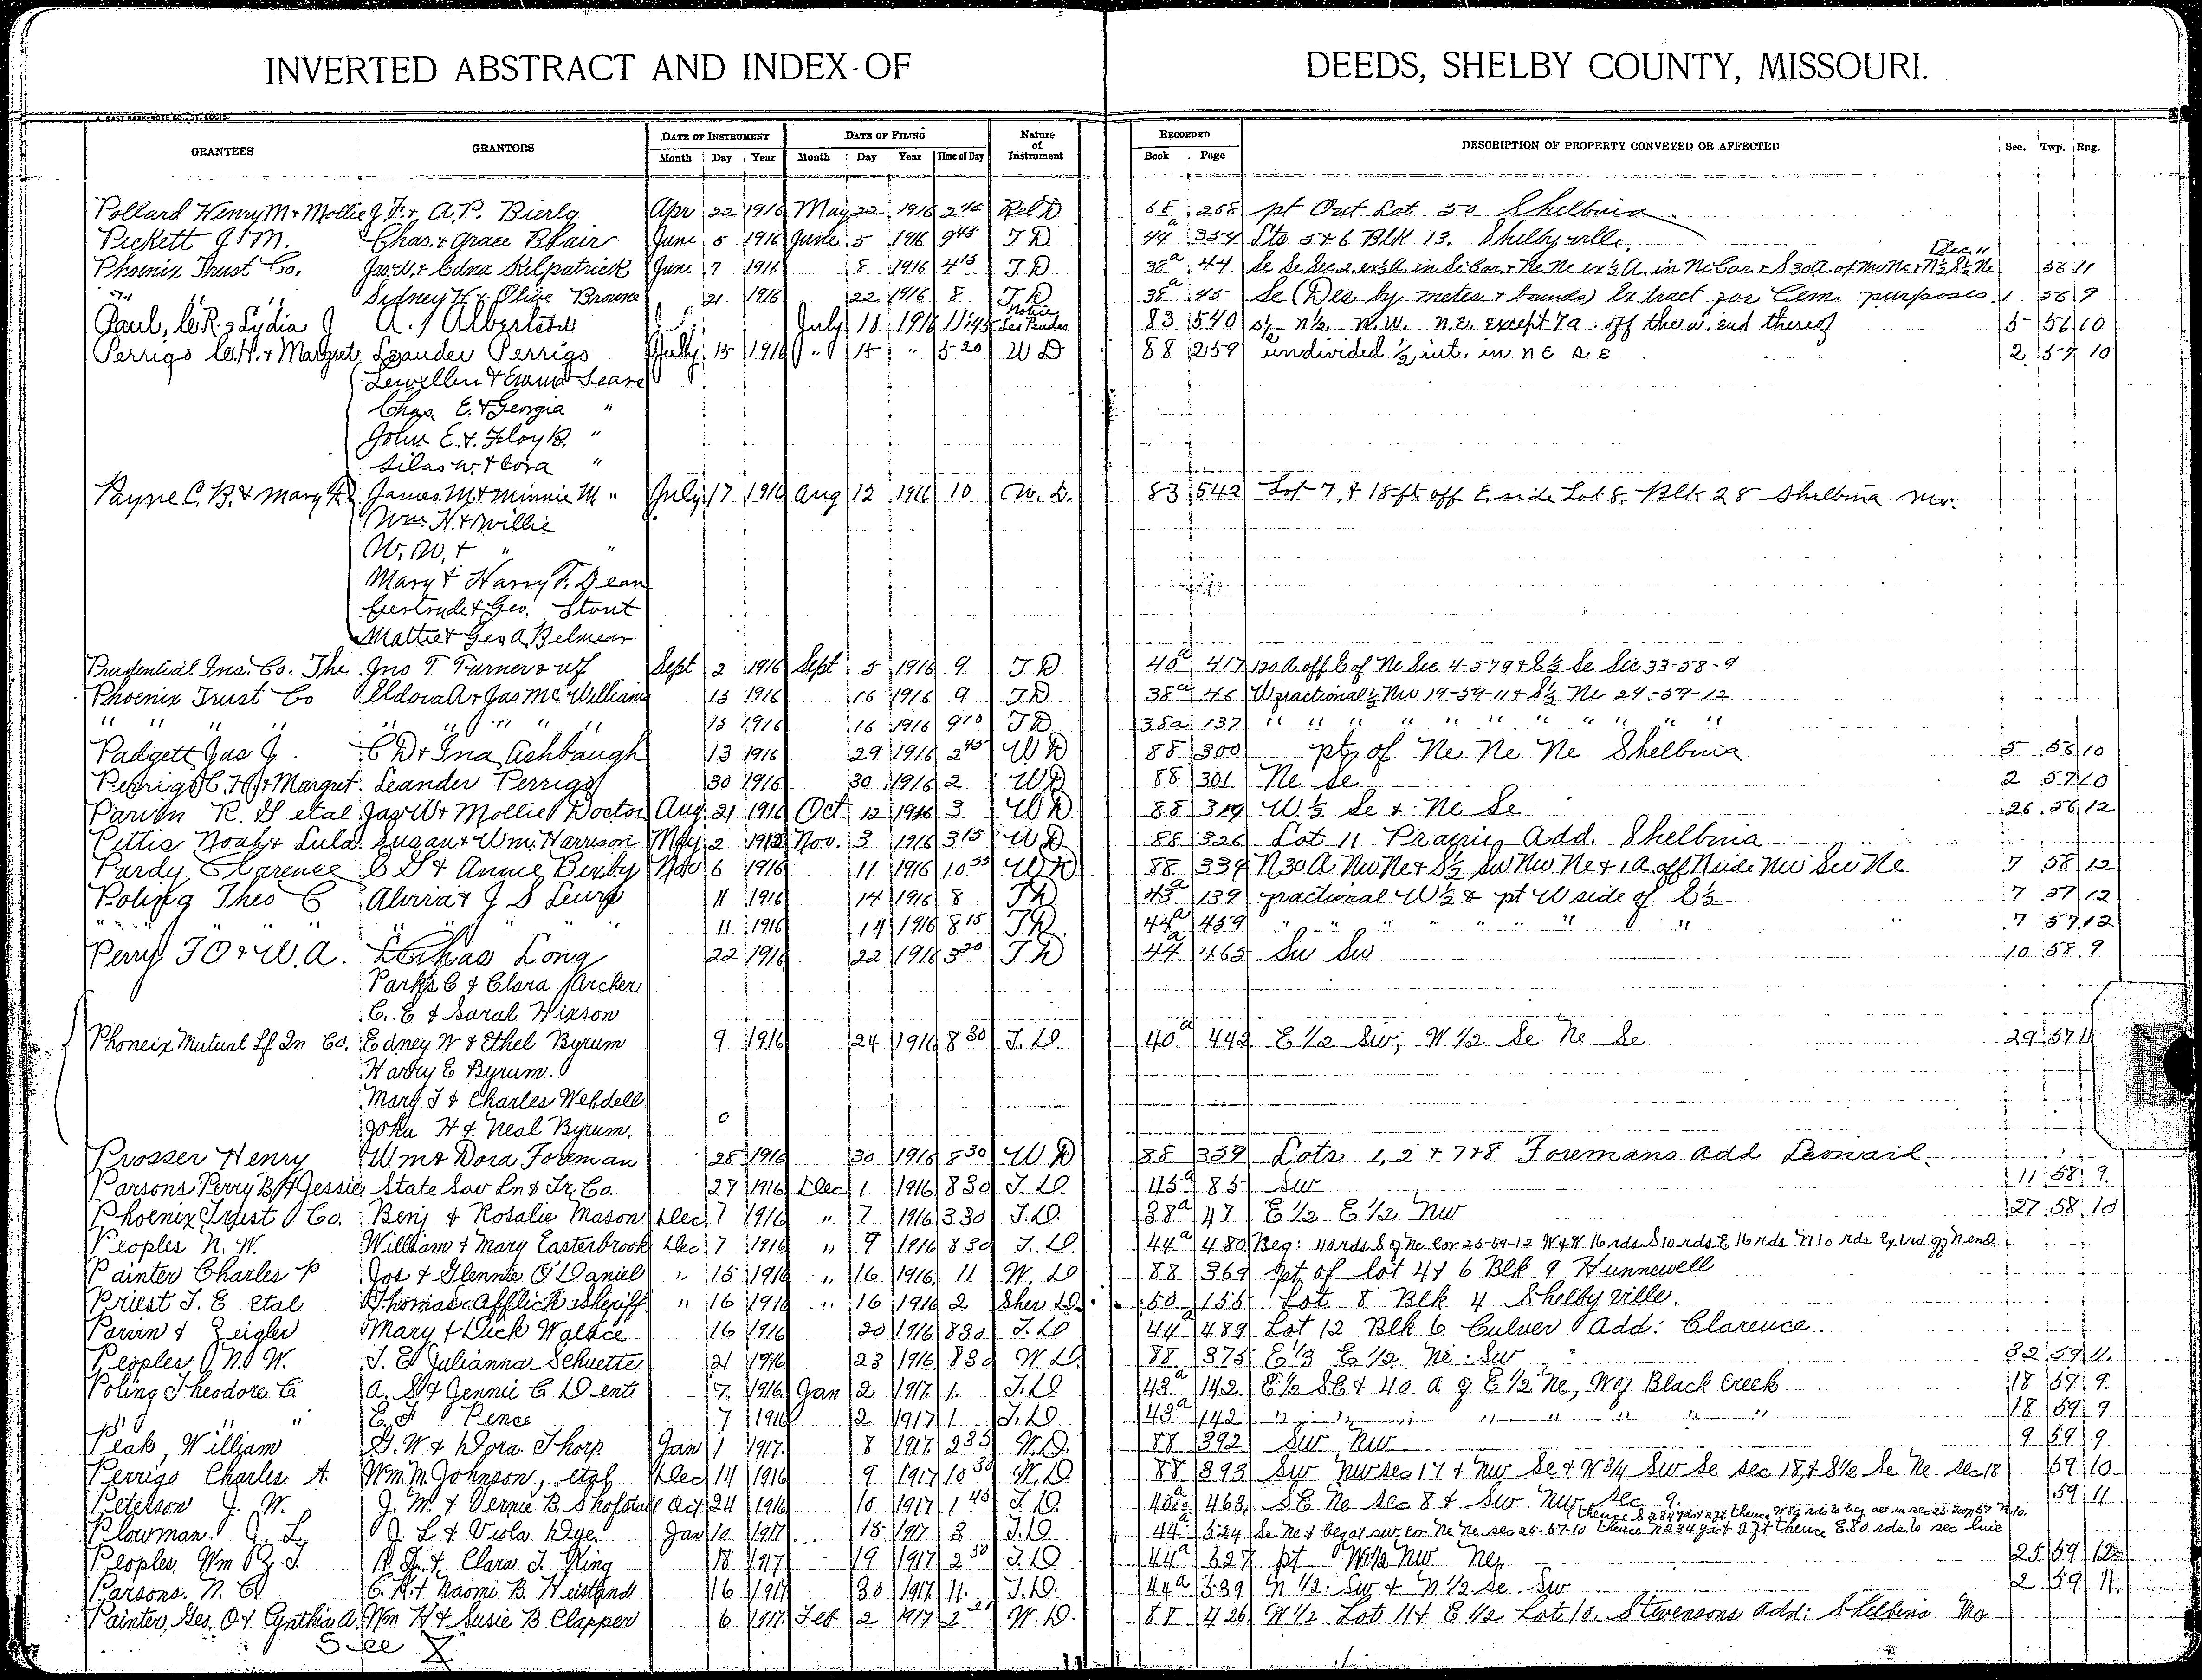 INVERTED ABSTRACT AND INDEX OF DEEDS, SHELBY COUNTY, MISSOURI.
GRANTEES GRANTORS DATE OF INSTRUMENT DATE OF FILING Nature of Instrument RECORDED DESCRIPTION OF PROPERTY CONVEYED OR AFFECTED Sec. Twp. Rng.
Month Day Year Month Day Year Time of Day Book Page
Pollard Henry M + Mollie J. F. + A. P. Bierly Apr 22 1916 May 22 1916 Rel D 68 268 pt Out Lot 50 Shelbina
Pickett J M. Chas. + Grace Blair June 5 1916 June 5 1916 9 45 T D 44 a 354 Lts 5 + 6 Blk 13. Shelbyville.
Phoenix Trust Co. Jas. W. + Edna Kilpatrick June 7 1916 8 1916 4 15 T D 38 a 44 Se Se Sec 2, ex ½ A. in Se Cor. + Ne Ne ex ½ A. in Ne Cor + S 30 A. of Nw Ne + N ½ S ½ Ne Sec 11 58 11
" " " Sidney H + Olive Browne 21 1916 22 1916 8 T D 38 a 45 Se (Des by metes + bounds) Ex tract for Cem. purposes 1 56 9
Paul, C. R. + Lydia J A. J Albertson July 18 1916 11 45 Notice Les Pendes 83 540 S ½ N ½ N.W. N.E. except 7 a. off the w. end thereof 5 56 10
Perrigo C. H. + Margret Leander Perrigo July 15 1916 " 15 " 5 20 W D 88 259 undivided ½ int. in N E S E 2 57 10
Lewellen + Emma Sears
Chas. E. + Georgia "
John E. + Floy B. "
Silas W. + Cora "
Payne C. B. + Mary F. James M + Minnie M " July 17 1916 Aug 12 1916 10 W. D. 83 542 Lot 7, + 18 ft off E side Lot 8. Blk 28 Shelbina Mo.
Wm. H. + Willie
W. W. + " "
Mary + Harry T. Dean
Gertrude + Geo. Stout
Mattie + Geo A. Belmear
Prudential Ins. Co. The Jno T Turner & wf Sept 2 1916 Sept 5 1916 9 T D 40 a 417 120 A. off E of Ne Sec 4-57-9 + E ½ Se Sec 33-58-9
Phoenix Trust Co Eldora A + Jas McWilliams 15 1916 16 1916 9 T D 38 a 46 W fractional ½ Nw 19-59-11 + S ½ Ne 24-59-12
" " " " " " " " 15 1916 16 1916 9 10 T D 38a 137 " " " " " " " " " "
Padgett Jas J. C D + Ina Ashbaugh 13 1916 29 1916 2 45 W D 88 300 pt of Ne Ne Ne Shelbina 5 56 10
Perrigo C. H. + Margret. Leander Perrigo 30 1916 30 1916 2 W D 88 301 Ne Se 2 57 10
Parvin R. S etal Jas W + Mollie Doctor Aug. 21 1916 Oct. 12 1916 3 W D 88 319 W ½ Se + Ne Se 26 56 12
Pettis Noah + Lula Susan + Wm. Harrison May 2 1912 Nov. 3 1916 3 15 W D 88 326 Lot 11 Prairie Add. Shelbina
Purdy Clarence C S + Annie Bixby Nov 6 1916 11 1916 W D 88 334 N 30 A Nw Ne + S ½ Sw Nw Ne + 1 A. off N side Nw Sw Ne 7 58 12
Poling Theo C Alvira + J S 11 1916 14 1916 8 T D 43 a 139 fractional W ½ & pt W side of E ½ 7 57 12
" " " " " " 11 1916 14 1916 8 15 T D 44 a 459 " " " " " " " 7 57 12
Perry F O + W. A. Long 22 1916 22 1916 3 20 T D 44 a 465 Sw Sw 10 58 9
Parks C & Clara Archer
C. E & Sarah Hixson
Phoneix Mutual Lf In Co. Edney W & Ethel Byrum 9 1916 24 1916 8 30 T. D. 40 a 442 E 1/2 Sw; W 1/2 Se Ne Se 29 57 11
Harry E Byrum.
Mary J & Charles Webdell
John H & Neal Byrum.
Prosser Henry Wm + Dora Foreman 28 1916 30 1916 8 30 W D 88 359 Lots 1, 2 + 7 + 8 Foremans Add Leonard
Parsons Perry B & Jessie State Sav Ln & Tr. Co. 27 1916 Dec 1 1916 8 30 T. D. 45 a 85 Sw 11 58 9
Phoenix Trust Co. Benj & Rosalie Mason Dec 7 1916 " 7 1916 3 30 T. D. 38 a 47 E 1/2 E 1/2 Nw 27 58 10
Peoples N. W. William & Mary Easterbrook Dec 7 1916 " 9 1916 8 30 T. D. 44 a 480 Beg: 40 rds S of Ne Cor 25-59-12 W 16 rds S 10 rds E 16 rds N 10 rds Ex 1 rd of N end
Painter Charles P Jos & Glennie O'Daniel " 15 1916 " 16 1916 11 W. D 88 369 pt of lot 4 & 6 Blk 9 Hunnewell
Priest J. E etal Thomas Afflick Sheriff " 16 1916 " 16 1916 2 Sher D. 50 155 Lot 8 Blk 4 Shelbyville.
Parvin & Zeigler Mary & Dick Wallace 16 1916 20 1916 8 30 T. D 44 a 489 Lot 12 Blk 6 Culver Add: Clarence.
Peoples N. W. J. E & Julianna Schuette 21 1916 23 1916 8 30 W. D. 88 375 E 1/3 E 1/2 Ne : Sw 32 59 11.
Poling Theodore C A. S & Jennie C Dent 7. 1916 Jan 2 1917 1. T. D 43 a 142 E ½ SE & 40 a of E 1/2 Ne, W of Black Creek 18 59 9
" " " E. F Pence 7 1916 2 1917 1 T. D 43 a 142 " " " " " " " " 18 59 9
Peak, William G. W & Dora Thorp Jan 1 1917 8 1917 2 35 W. D. 88 392 Sw Nw 9 59 9
Perrigo Charles A. Wm. M. Johnson, etal Dec 14 1916 9 1917 10 30 W. D 88 393 Sw Nw sec 17 & Nw Se & W 3/4 Sw Se sec 18, & S 1/2 Se Ne sec 18 59 10
Peterson J. W. J. M. & Vernie B. Shofstall Oct 24 1916 10 1917 1 45 T. D. 40 a 463 S E Ne sec 8 & Sw Nw sec 9. 59 11
Plowman J. L J. L & Viola Dye Jan 10 1917 15 1917 3 T. D 44 a 524 Se Ne & beg at sw cor Ne Ne sec 25-57-10 thence N 224 yds & 2 ft thence E 80 rds to sec line
Peoples, Wm R. J. & Clara J. King 18 1917 19 1917 2 30 T. D 44 a 527 pt W 1/2 Nw Ne 25 59 12
Parsons. N. E. & Naomi B. 16 1917 30 1917 11. T. D. 44 a 539 N 1/2 Sw & N 1/2 Se Sw 2 59 11
Painter, Geo. O & Cynthia A. Wm H & Susie B Clapper 6 1917 Feb 2 1917 W. D. 88 426 W 1/2 Lot 11 & E 1/2 Lot 10. Stevensons Add: Shelbina Mo
See Z